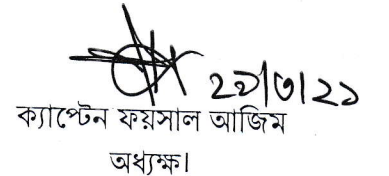 ২৯/৩/২১
ক্যাপ্টেন ফয়সাল আজিম
অধ্যক্ষ।